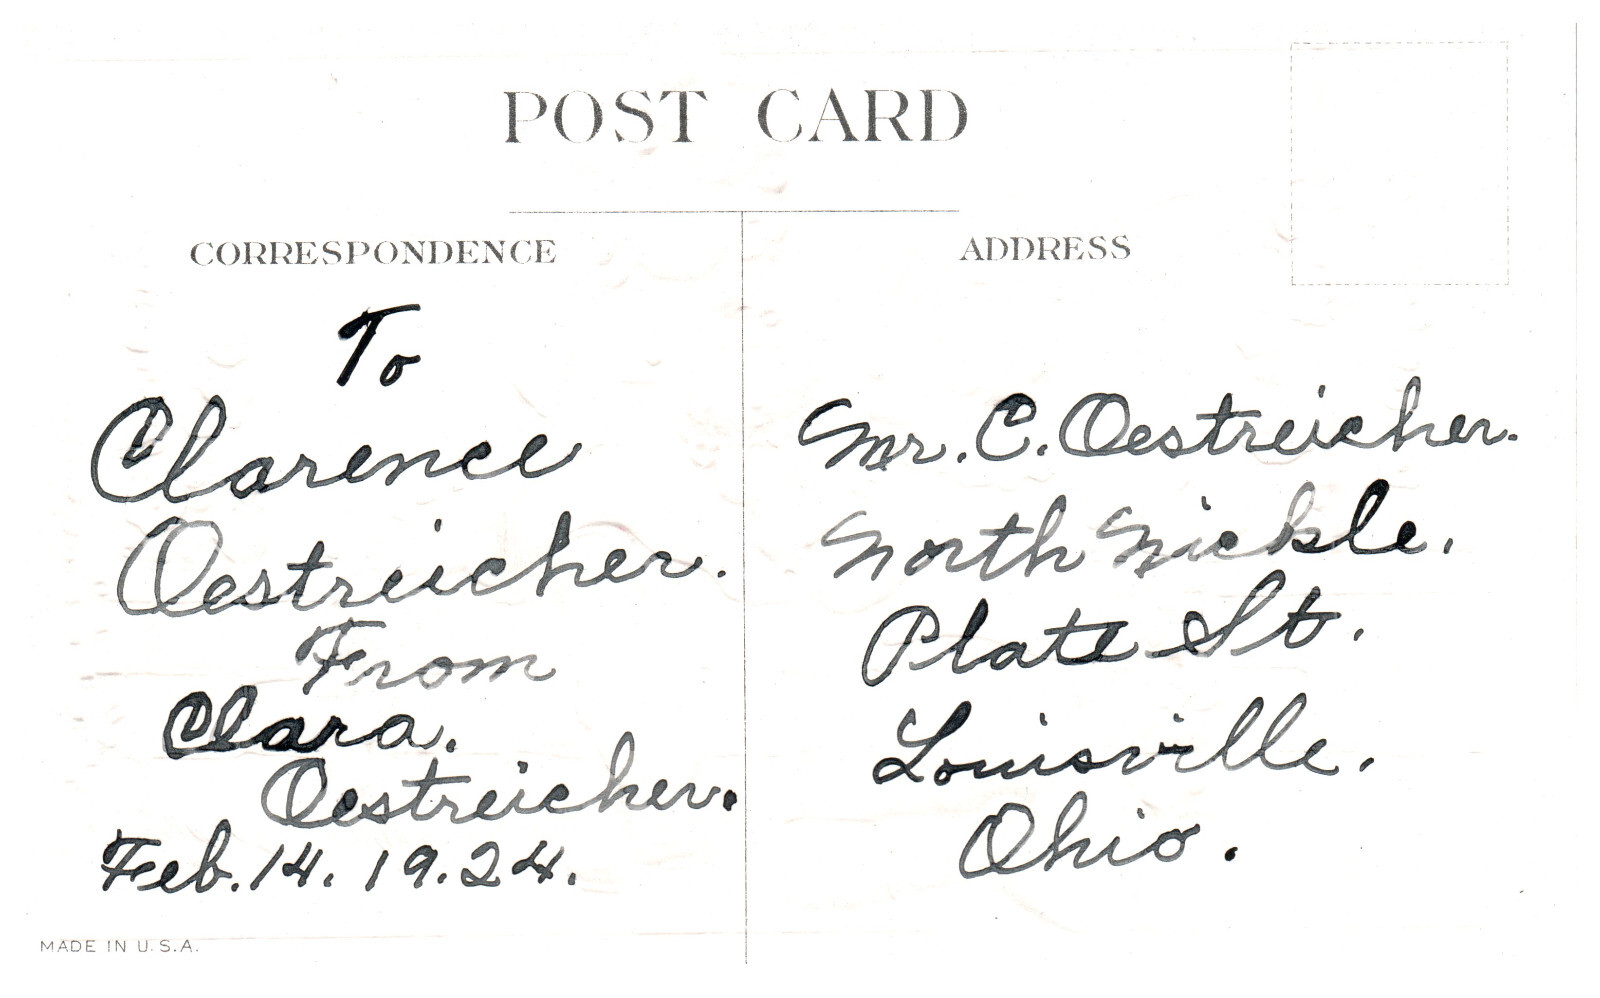 POST CARD
CORRESPONDENCE
To
Clarence
Oestreicher.
From
Clara.
Oestreicher.
Feb. 14. 19.24.
MADE IN U.S.A.
ADDRESS
Mr. C. Oestreicher.
North Nickle.
Plate St.
Louisville.
Ohio.